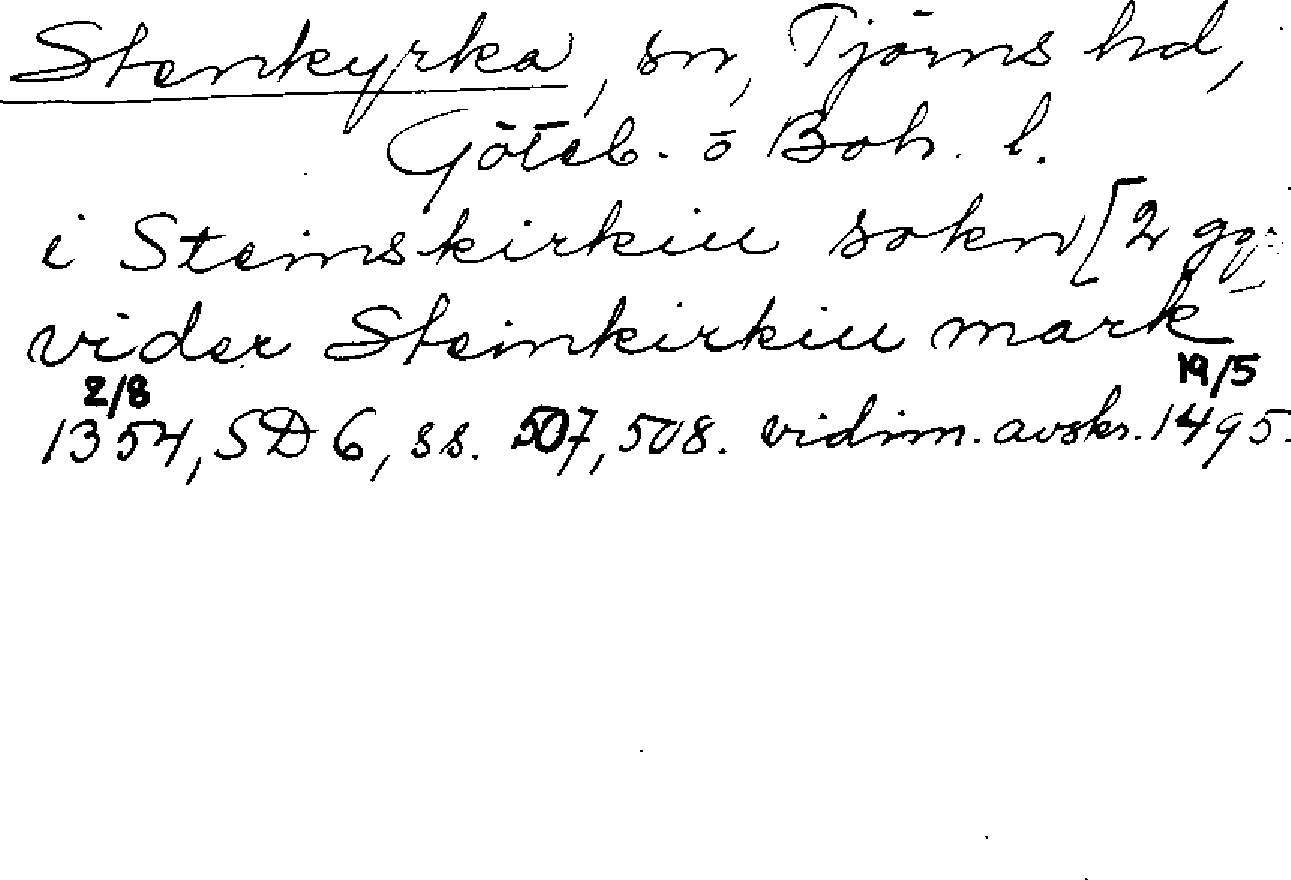 Stenkyrka, sn, Tjörns hd,
Göteb. o Boh. l.
i Steinskirkiu sokn [2 gg]
vider Steinkirkiu mark
2/8 19/5
1354, SD 6, ss. 507, 508. vidim. avskr. 1495.